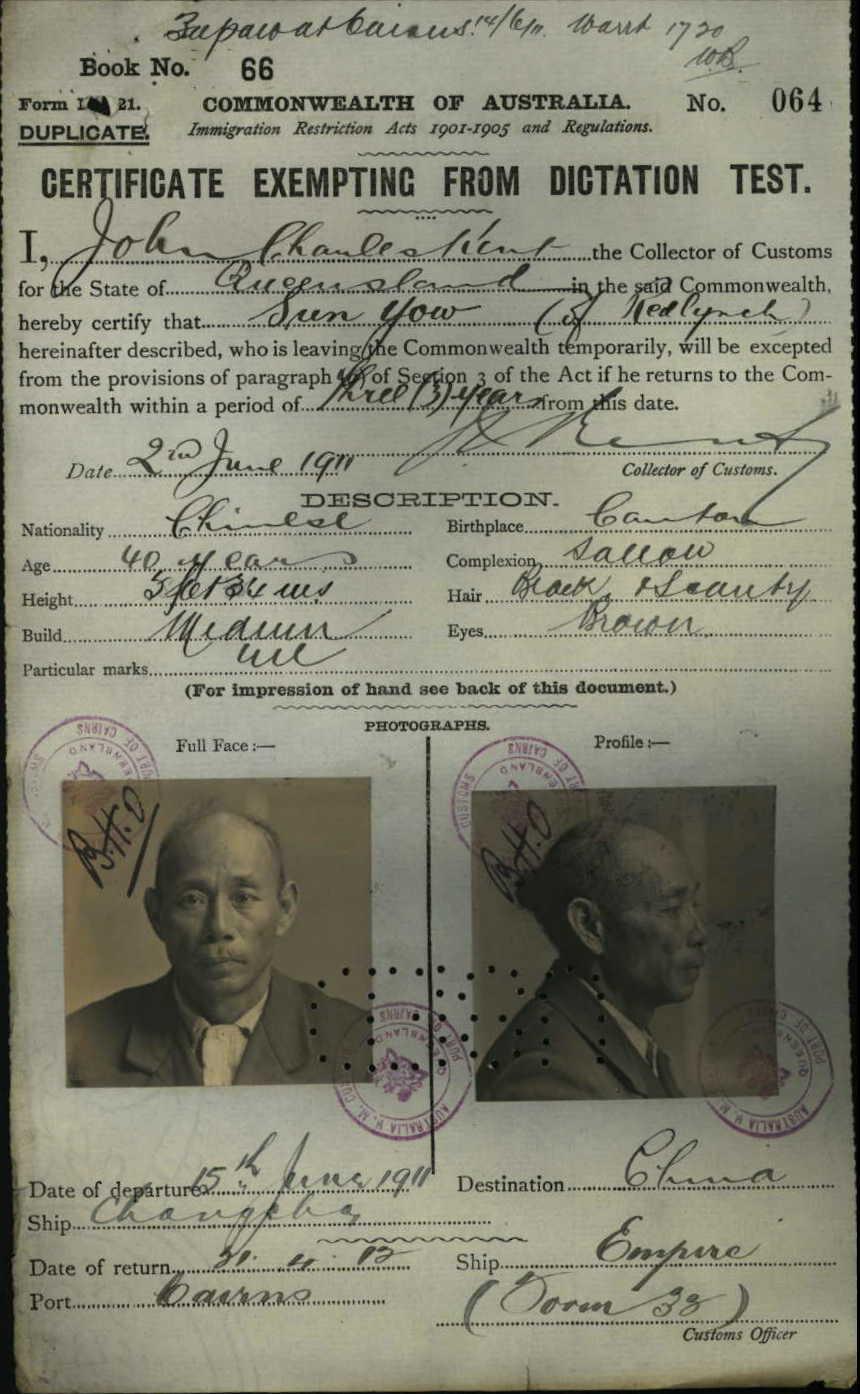 at Cairns 14/6/11. Warrt 1720
WB.
Book No. 66
Form 21. COMMONWEALTH OF AUSTRALIA. No. 064
DUPLICATE. Immigration Restriction Acts 1901-1905 and Regulations.
CERTIFICATE EXEMPTING FROM DICTATION TEST.
I, John Charles Kent the Collector of Customs
for the State of Queensland in the said Commonwealth,
hereby certify that Sun Yow (of Redlynch)
hereinafter described, who is leaving the Commonwealth temporarily, will be excepted
from the provisions of paragraph of Section 3 of the Act if he returns to the Com-
monwealth within a period of three (3) years from this date.
Date 2nd June 1911 Collector of Customs.
DESCRIPTION.
Nationality Chinese Birthplace Canton
Age 40 years Complexion Sallow
Height 5 feet ins Hair Black & Scanty
Build Medium Eyes Brown
Particular marks nil
(For impression of hand see back of this document.)
PHOTOGRAPHS.
Full Face :— Profile :—
PORT OF CAIRNS
QUEENSLAND
PORT OF CAIRNS
QUEENSLAND
CUSTOMS
B.H.O
B.H.O
PORT OF CAIRNS
QUEENSLAND
AUSTRALIA H. M. CU
PORT OF CAIRNS
QUEENSLAND
AUSTRALIA H. M.
Date of departure 15th June 1911 Destination China
Ship Changsha
Date of return 21. 4. 12 Ship Empire
Port Cairns (Form 32)
Customs Officer